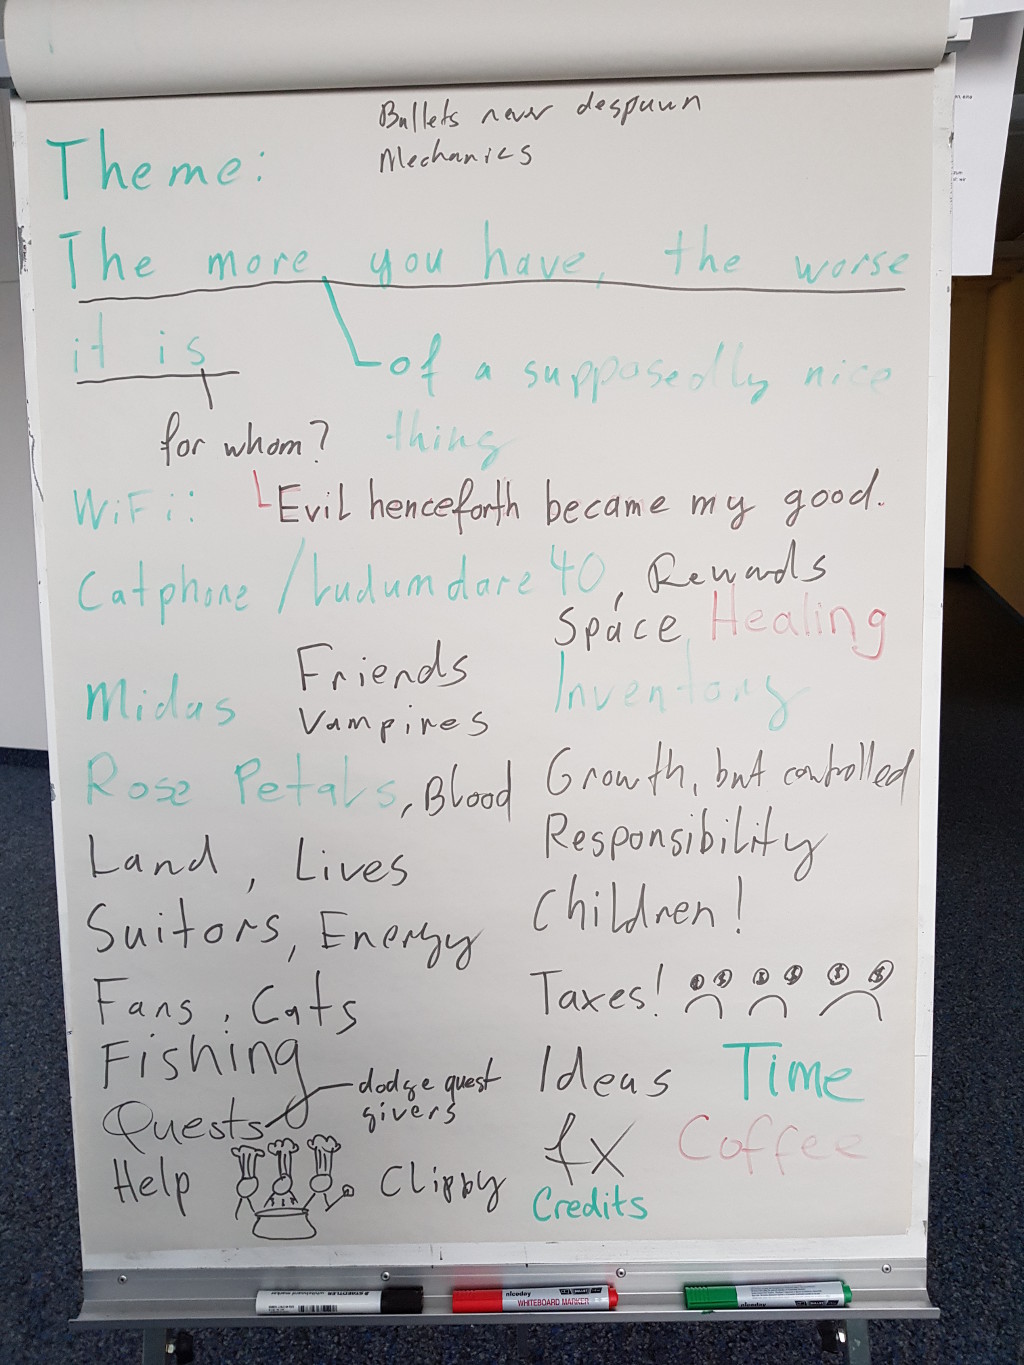 Bullets never despawn
Mechanics
Theme:
The more you have, the worse
it is
of a supposedly nice
thing
for whom?
WiFi: Evil henceforth became my good.
Catphone / Ludumdare 40, Rewards
Space, Healing
Midas Friends Inventory
Vampires
Rose Petals, Blood Growth, but controlled
Land, Lives Responsibility
Suitors, Energy Children!
Fans, Cats Taxes! $ $ $ $ $ $
Fishing Ideas Time
dodge quest
givers
Quests fx Coffee
Help Clippy Credits
STAEDTLER
whiteboard marker
niceday
WHITEBOARD MARKER
niceday